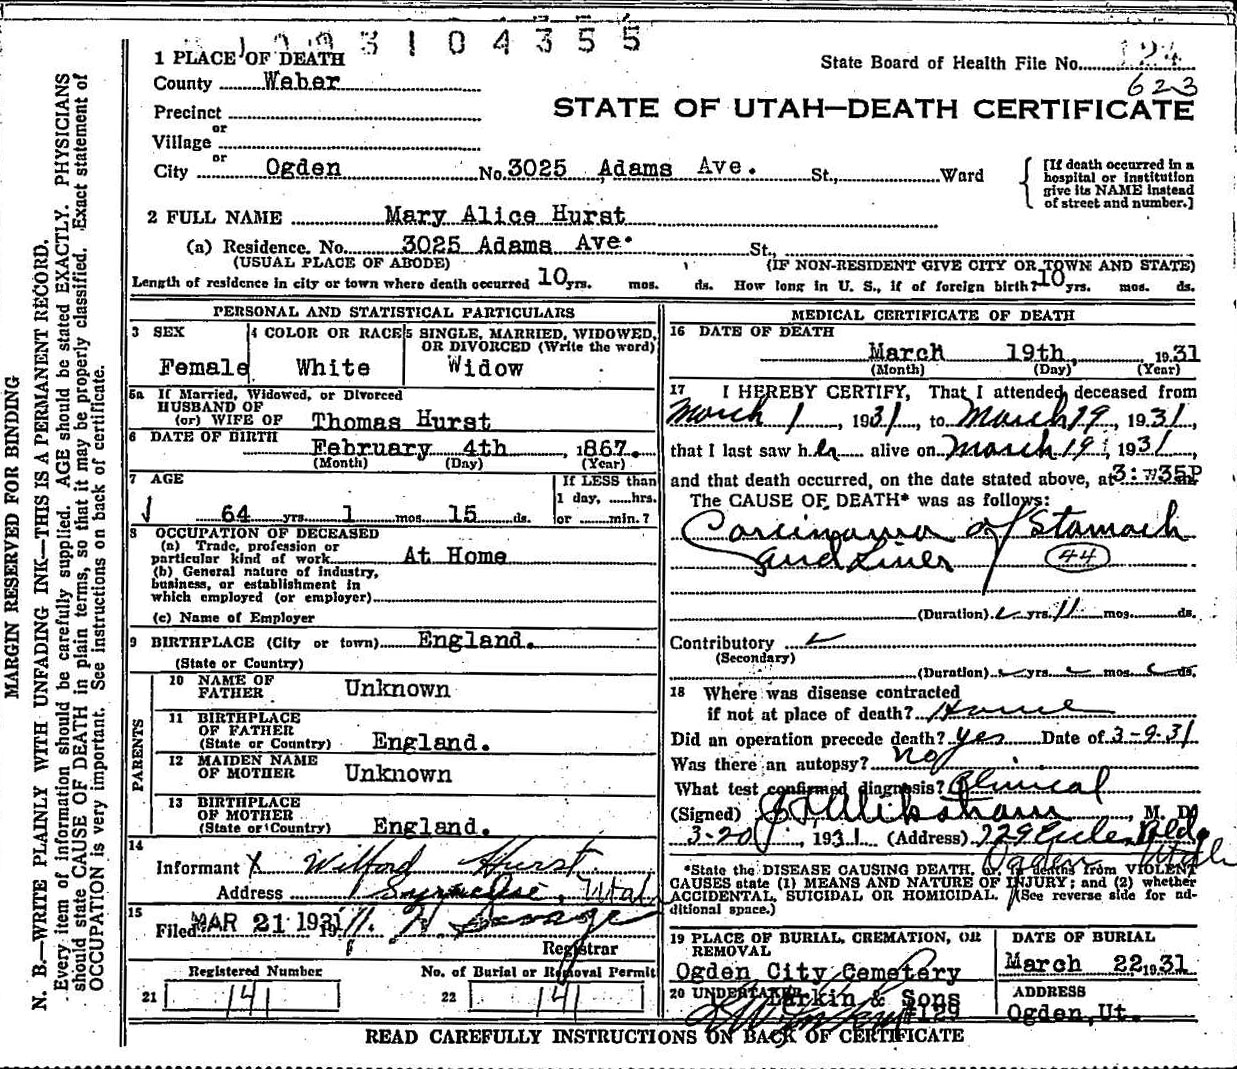 1931004355
1 PLACE OF DEATH
State Board of Health File No. 124
County Weber
623
STATE OF UTAH—DEATH CERTIFICATE
Precinct
or
Village
or
City Ogden No. 3025 Adams Ave. St., Ward
[If death occurred in a
hospital or institution
give its NAME instead
of street and number.]
2 FULL NAME Mary Alice Hurst
(a) Residence. No. 3025 Adams Ave. St.,
(USUAL PLACE OF ABODE) (IF NON-RESIDENT GIVE CITY OR TOWN AND STATE)
Length of residence in city or town where death occurred 10 yrs. mos. ds. How long in U. S., if of foreign birth? 10 yrs. mos. ds.
PERSONAL AND STATISTICAL PARTICULARS
3 SEX 4 COLOR OR RACE 5 SINGLE, MARRIED, WIDOWED,
OR DIVORCED (Write the word)
Female White Widow
5a If Married, Widowed, or Divorced
HUSBAND OF
(or) WIFE OF Thomas Hurst
6 DATE OF BIRTH
February 4th , 1867.
(Month) (Day) (Year)
7 AGE If LESS than
1 day, ......hrs.
64 yrs. 1 mos. 15 ds. or ......min.?
8 OCCUPATION OF DECEASED
(a) Trade, profession or
particular kind of work At Home
(b) General nature of industry,
business, or establishment in
which employed (or employer)
(c) Name of Employer
9 BIRTHPLACE (City or town) England.
(State or Country)
PARENTS
10 NAME OF
FATHER Unknown
11 BIRTHPLACE
OF FATHER
(State or Country) England.
12 MAIDEN NAME
OF MOTHER Unknown
13 BIRTHPLACE
OF MOTHER
(State or Country) England.
14
Informant X Wilford Hurst
Address Syracuse, Utah
15
Filed MAR 21 1931 19 H. Savage
Registrar
Registered Number No. of Burial or Removal Permit
21 141 22 141
MEDICAL CERTIFICATE OF DEATH
16 DATE OF DEATH
March 19th, 1931
(Month) (Day) (Year)
17 I HEREBY CERTIFY, That I attended deceased from
March 1, 1931, to March 19, 1931,
that I last saw her alive on March 19, 1931,
and that death occurred, on the date stated above, at 3:35P m.
The CAUSE OF DEATH* was as follows:
Carcinoma of Stomach
and Liver 44
(Duration) yrs. 11 mos. ds.
Contributory
(Secondary)
(Duration) yrs. mos. ds.
18 Where was disease contracted
if not at place of death? Home
Did an operation precede death? yes Date of 3-9-31
Was there an autopsy? no
What test confirmed diagnosis? Clinical
(Signed) M. D.
3-20, 1931 (Address) 729 Eccles Bldg
Ogden Utah
*State the DISEASE CAUSING DEATH, or, in deaths from VIOLENT
CAUSES state (1) MEANS AND NATURE OF INJURY; and (2) whether
ACCIDENTAL, SUICIDAL OR HOMICIDAL. (See reverse side for ad-
ditional space.)
19 PLACE OF BURIAL, CREMATION, OR
REMOVAL
Ogden City Cemetery
DATE OF BURIAL
March 22 1931
20 UNDERTAKER Larkin & Sons
#129
ADDRESS
Ogden, Ut.
READ CAREFULLY INSTRUCTIONS ON BACK OF CERTIFICATE
MARGIN RESERVED FOR BINDING
N. B.—WRITE PLAINLY WITH UNFADING INK—THIS IS A PERMANENT RECORD.
Every item of information should be carefully supplied. AGE should be stated EXACTLY. PHYSICIANS
should state CAUSE OF DEATH in plain terms, so that it may be properly classified. Exact statement of
OCCUPATION is very important. See instructions on back of certificate.